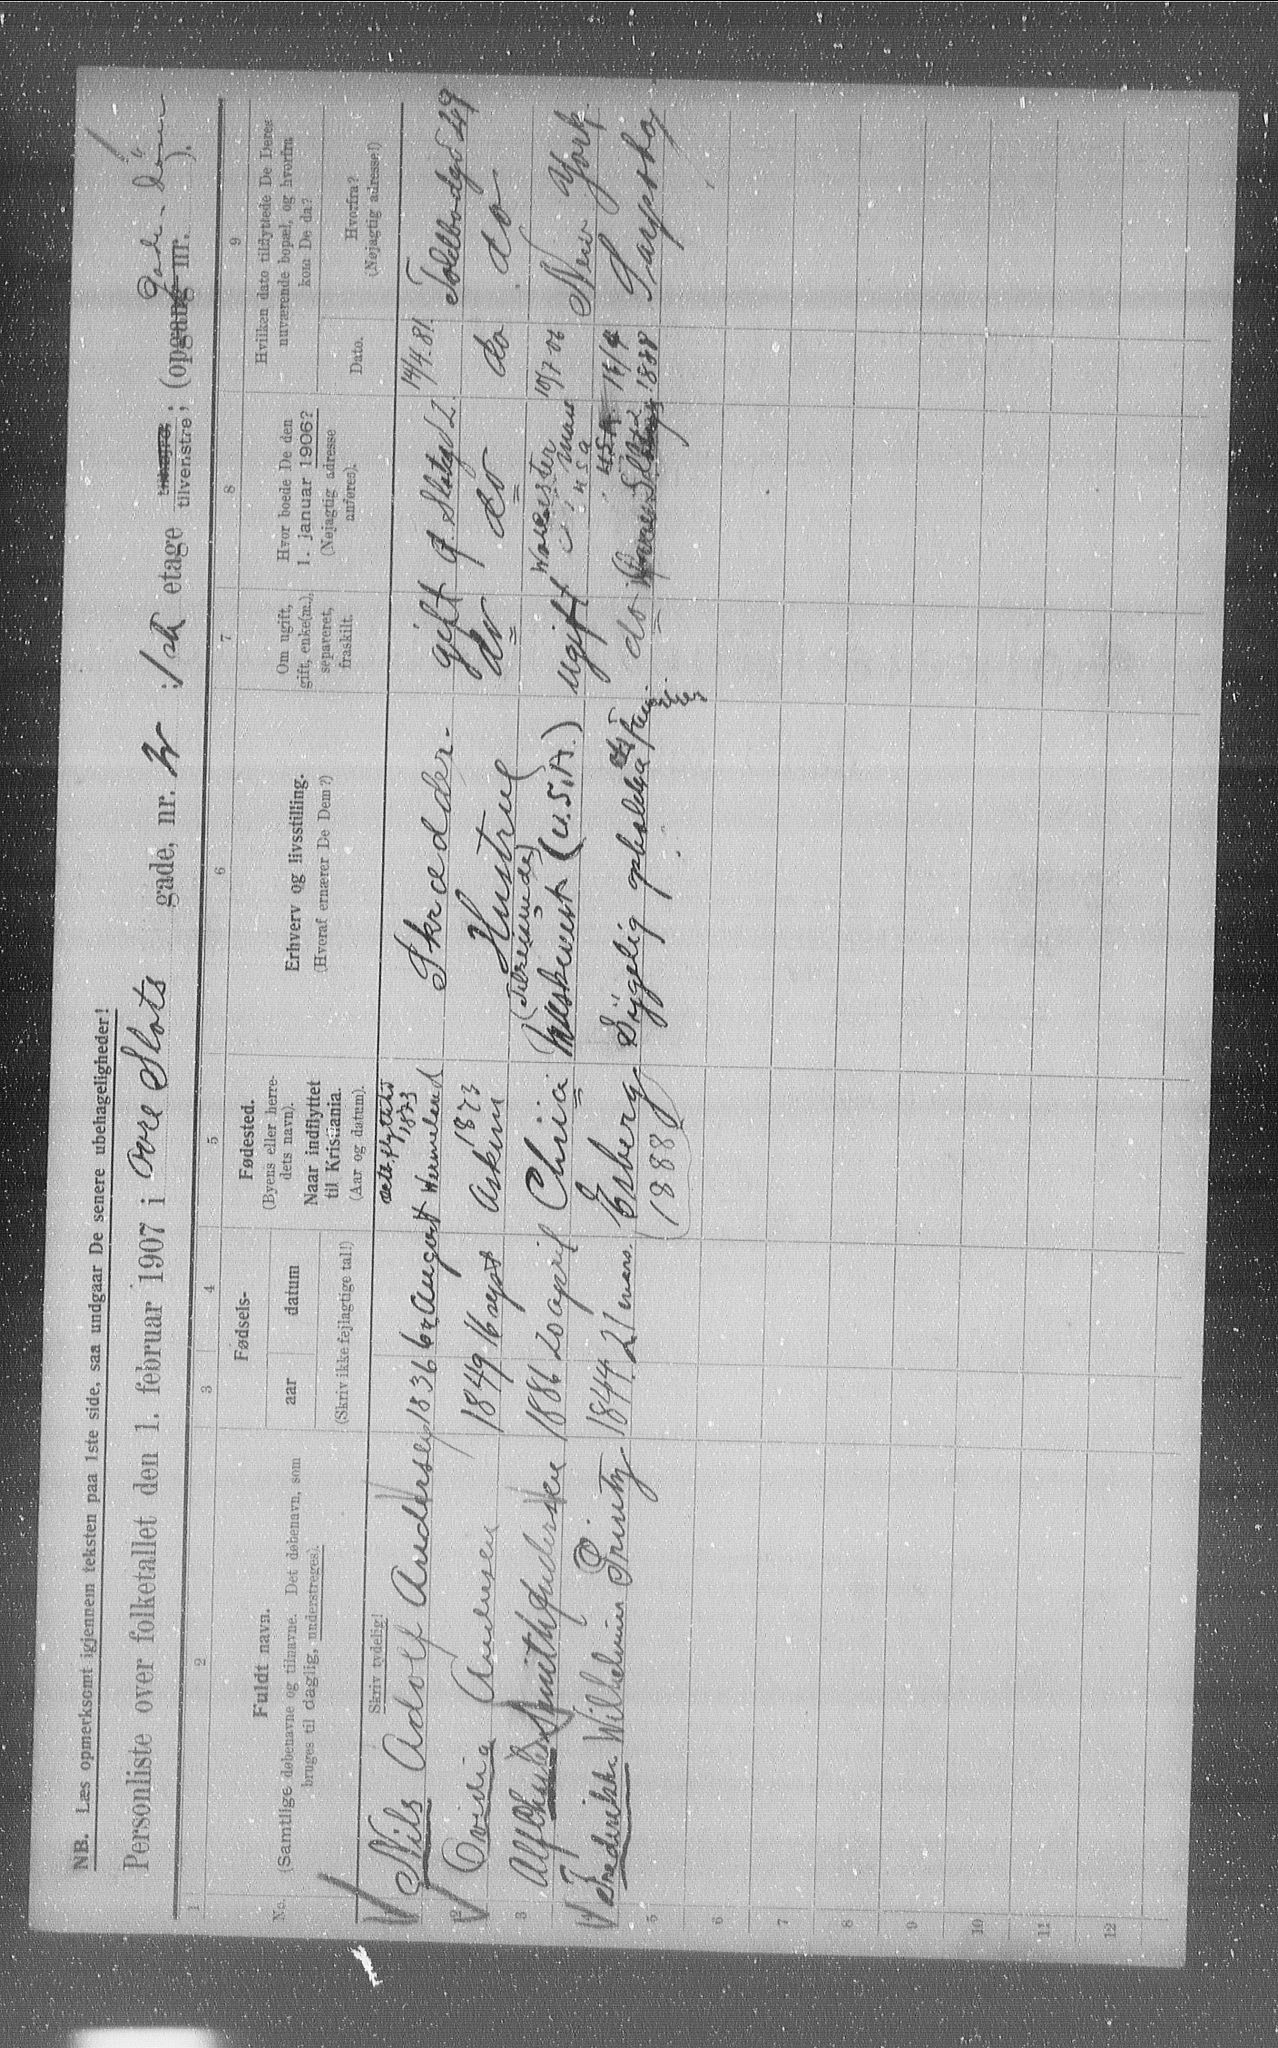 NB. Læs opmerksomt igjennem teksten paa 1ste side, saa undgaar De senere ubehageligheder!
Personliste over folketallet den 1. februar 1907 i Øvre Slots gade, nr. 2 : 1st etage tilvenstre; (opgang nr. ).
1 2 3 4 5 6 7 8 9
No.
Fuldt navn.
(Samtlige døbenavne og tilnavne. Det døbenavn, som
bruges til daglig, understreges).
Skriv tydelig!
Fødsels-
aar
datum
(Skriv ikke fejlagtige tal!)
Fødested.
(Byens eller herre-
dets navn).
Naar indflyttet
til Kristiania.
(Aar og datum).
Erhverv og livsstilling.
(Hvoraf ernærer De Dem?)
Om ugift,
gift, enke(m.),
separeret,
fraskilt.
Hvor boede De den
1. januar 1906?
(Nøjagtig adresse
anføres).
Hvilken dato tilflyttede De Deres
nuværende bopæl, og hvorfra
kom De da?
Dato.
Hvorfra?
(Nøjagtig adresse!)
Nils Adolf Andersen 1836 6 August Wermeland 1873 Skrædder. gift Ø. Slotsgd 2. 14/4.81. Toldbodgd 49
2 Ovidia Andersen 1849 16 sept Askim 1873 Hustru do do do do
3 Alf Smith Andersen 1886 20 april Chria (Tilreisende) (U.S.A.) ugift Worcester Mass USA 10/7 06 New York
4 Frederikke Wilhelmine 1844 21 mars. (1888) Sygelig do 1888 Sarpsborg
5
6
7
8
9
10
11
12